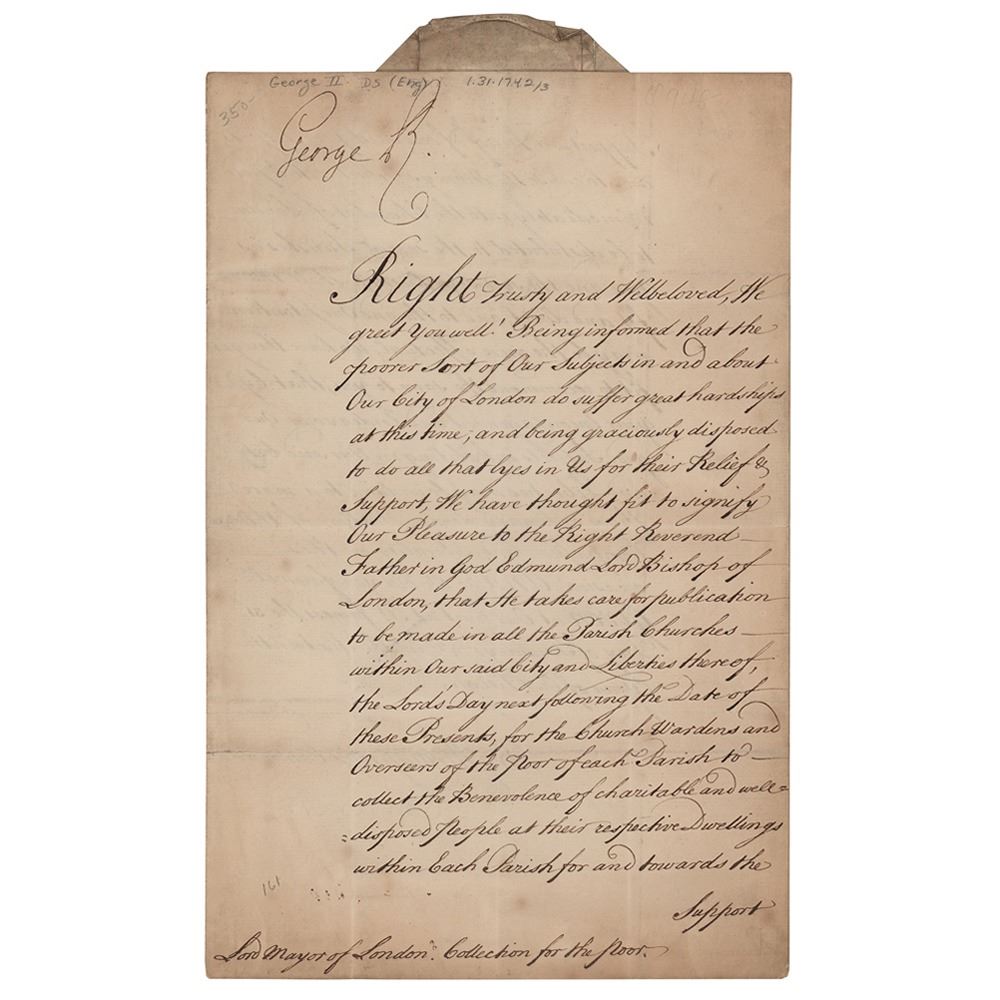 George II DS (Eng) 1.31.1742/3
350-
George R.
Right Trusty and Welbeloved, We
greet You well! Being informed that the
poorer Sort of Our Subjects in and about
Our City of London do suffer great hardships
at this time, and being graciously disposed
to do all that lyes in Us for their Relief &
Support, We have thought fit to signify
Our Pleasure to the Right Reverend
Father in God Edmund Lord Bishop of
London, that He takes care for publication
to be made in all the Parish Churches
within Our said City and Liberties thereof,
the Lord's Day next following the Date of
these Presents, for the Church Wardens and
Overseers of the Poor of each Parish to
collect the Benevolence of charitable and well=
=disposed People at their respective Dwellings
within Each Parish for and towards the
161
Support
Lord Mayor of London. Collection for the Poor.